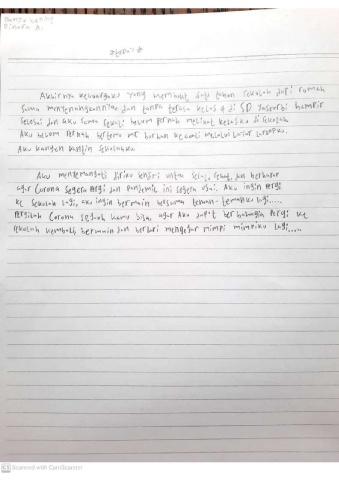 Dinara A.
Akhirnya keluargaku yang membuat aku tahan sekolah dari rumah
sama menyenangkannya dan tanpa terasa kelas 4 di SD Yasporbi hampir
selesai dan aku sama sekali belum pernah melihat kelasku di sekolah
Aku belum pernah bertemu mr bahkan kecuali melalui layar laptopku.
Aku kangen kantin sekolahku
Aku menyemangati diriku sendiri untuk selalu sehat dan berharap
agar Corona segera pergi dan pandemik ini segera usai. Aku ingin pergi
ke sekolah lagi, aku ingin bermain bersama teman-temanku lagi.....
Pergilah Corona sejauh kamu bisa, agar Aku dapat berbahagia pergi ke
sekolah kembali, bermain dan berlari mengejar mimpi mimpiku lagi.....
CS Scanned with CamScanner